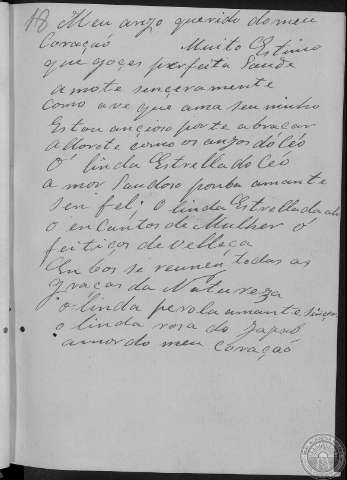 18 Meu anjo querido do meu
Coração Muito Estimo
que goges perfeita Saude
amote senceramente
como ave que ama seu ninho
Estou ancioso por te abraçar
adorote como os anjos do Céo
O' linda Estrella do Céo
amor Saudoso pomba amante
sem fel; O linda Estrella da
o encantos de Mulher ó
feitiços de velleça
Em bos se reunem todas as
graças da Natureza
o linda perola amante
o linda rosa do Japaõ
amor do meu coração